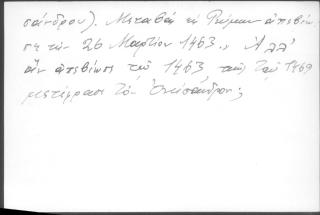 σάνδρου). Μεταβὰς εἰ Ρώμην ἀπεβίω
σε τὴν 26 Μαρτίου 1463., Ἀλλ'
ἂν ἀπεβίωσε τῷ 1463, πῶς τῷ 1469
μετέφρασε τὸν Ὀνήσανδρον;